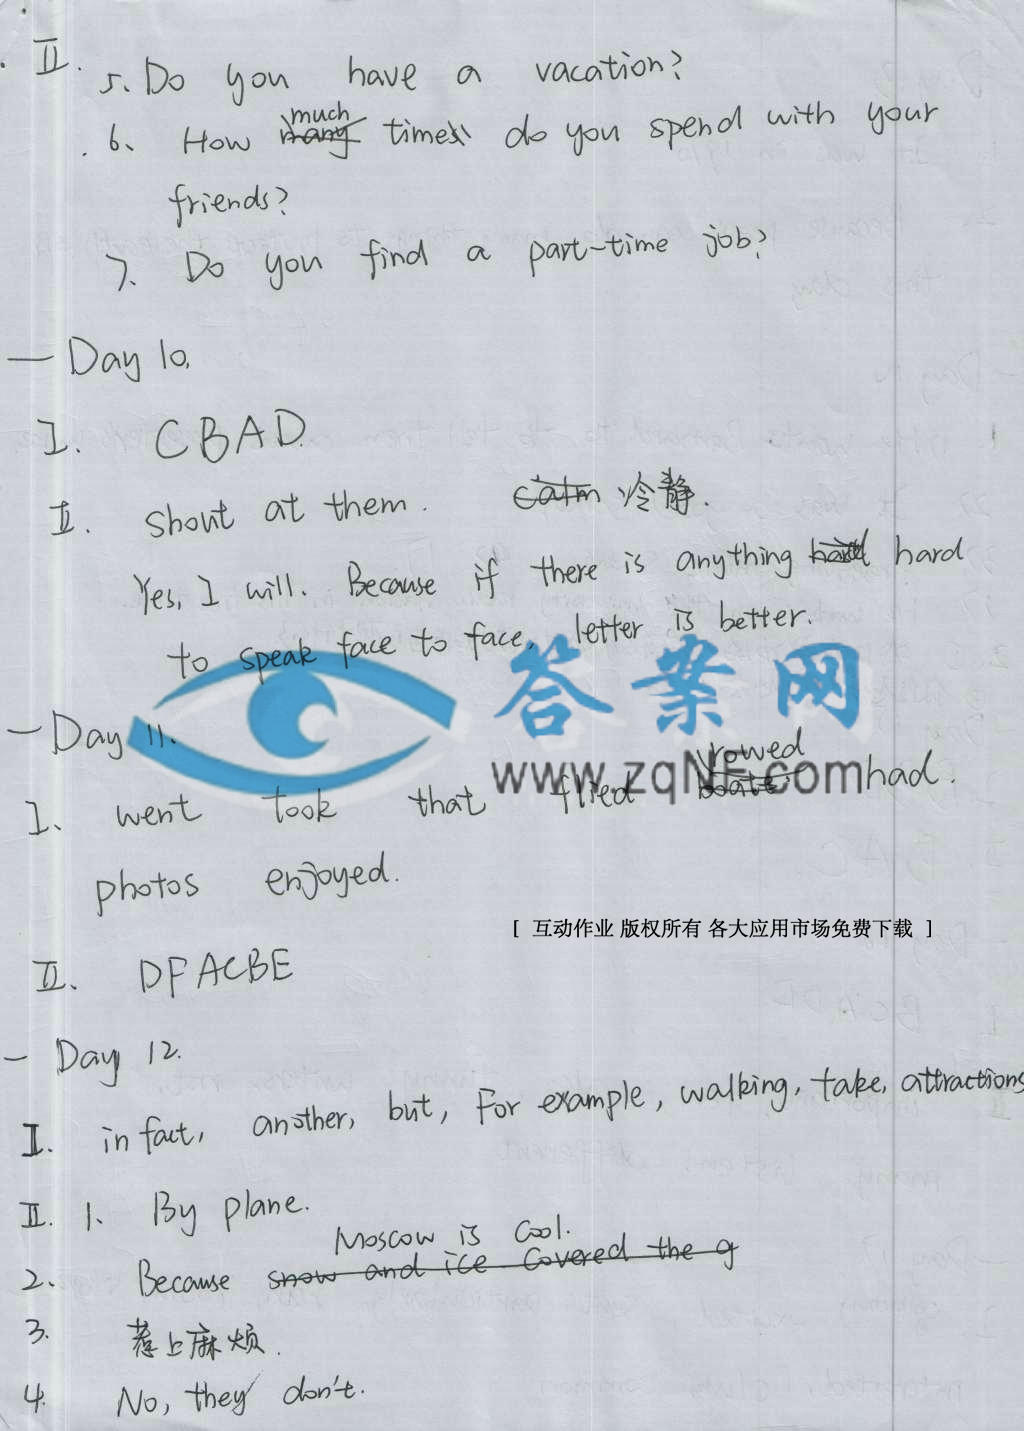 II. 5. Do you have a vacation?
6、 How many much times do you spend with your
friends?
7、 Do you find a part-time job?
— Day 10.
I. CBAD.
II. shout at them. calm 冷静.
Yes, I will. Because if there is anything hard hard
to speak face to face, letter is better.
答案网
— Day 11.
www.zqNF.com
I、 went took that flied boats rowed had.
photos enjoyed.
[ 互动作业 版权所有 各大应用市场免费下载 ]
II、 DFACBE
— Day 12.
II. in fact, another, but, For example, walking, take, attractions
II. 1、 By plane.
Moscow is cool.
2、 Because snow and ice covered the g
3. 惹上麻烦.
4. No, they don't.